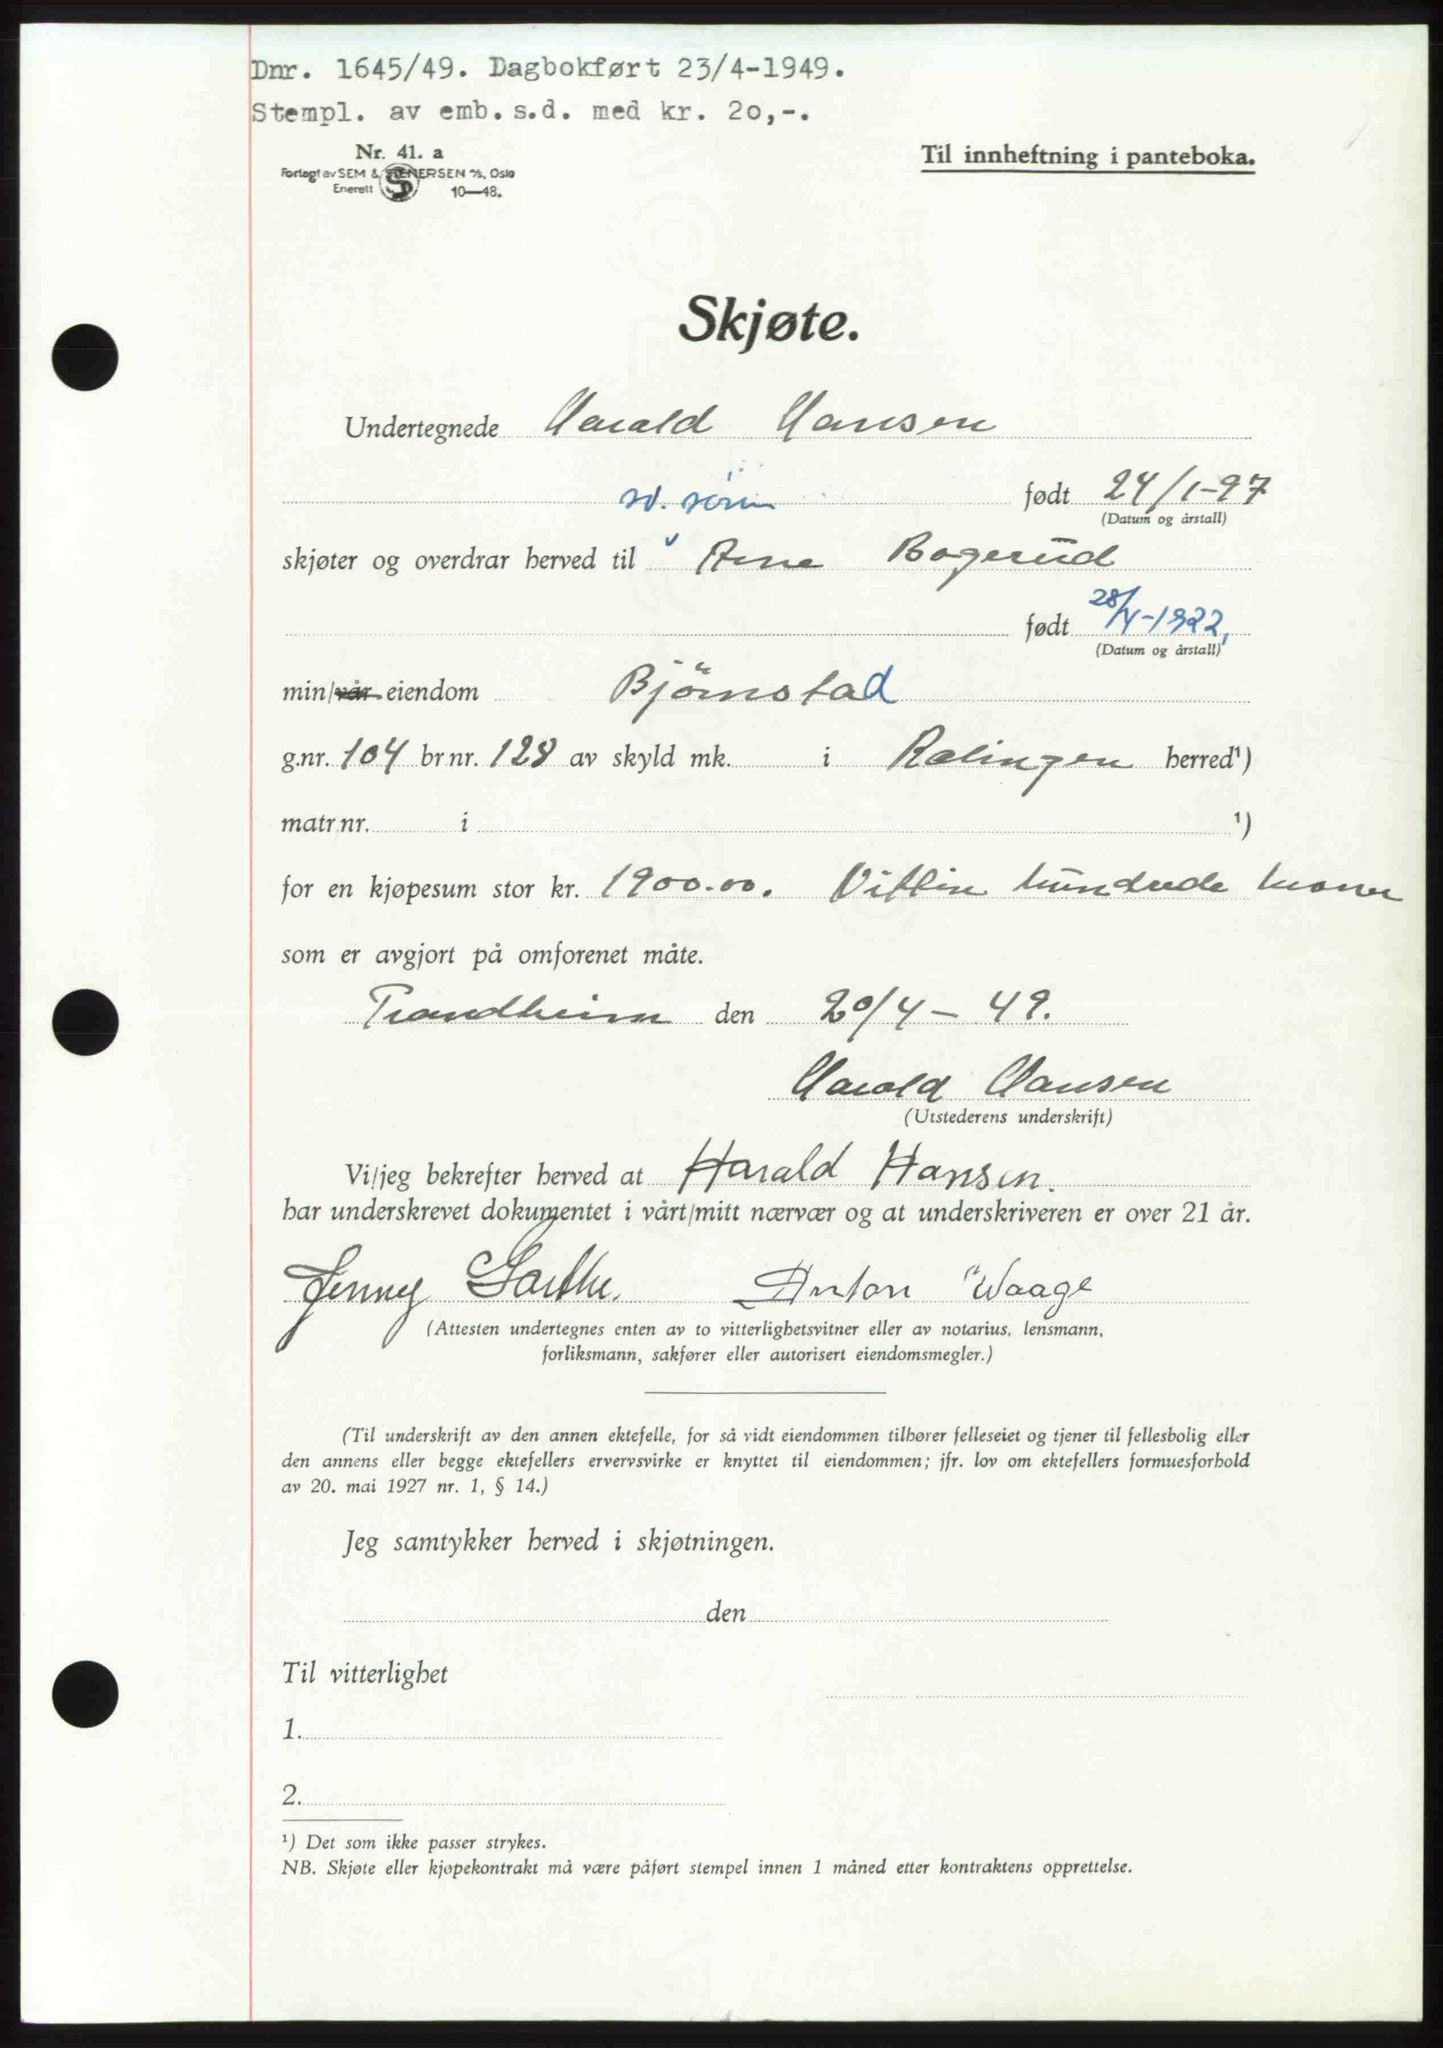 Dnr. 1645/49. Dagbokført 23/4-1949.
Stempl. av emb. s.d. med kr. 20,-.
Nr. 41. a
Forlagt av SEM & STENERSEN A/S, Oslo
Enerett 10—48.
Til innheftning i panteboka.
Skjøte.
Undertegnede Harald Hansen
født 24/1-97
(Datum og årstall)
skjøter og overdrar herved til Arne Bogerud
født 28/4-1922,
(Datum og årstall)
min/vår eiendom Björnstad
g.nr. 104 br.nr. 128 av skyld mk. i Rælingen herred¹)
matr.nr. i ¹)
for en kjøpesum stor kr. 1900.00. Nitten hundrede kroner
som er avgjort på omforenet måte.
Trandheim den 20/4-49.
Harald Hansen
(Utstederens underskrift)
Vi/jeg bekrefter herved at Harald Hansen.
har underskrevet dokumentet i vårt/mitt nærvær og at underskriveren er over 21 år.
Jenny Anton Waage
(Attesten undertegnes enten av to vitterlighetsvitner eller av notarius, lensmann,
forliksmann, sakfører eller autorisert eiendomsmegler.)
(Til underskrift av den annen ektefelle, for så vidt eiendommen tilhører felleseiet og tjener til fellesbolig eller
den annens eller begge ektefellers ervervsvirke er knyttet til eiendommen; jfr. lov om ektefellers formuesforhold
av 20. mai 1927 nr. 1, § 14.)
Jeg samtykker herved i skjøtningen.
den
Til vitterlighet
1.
2.
¹) Det som ikke passer strykes.
NB. Skjøte eller kjøpekontrakt må være påført stempel innen 1 måned etter kontraktens opprettelse.